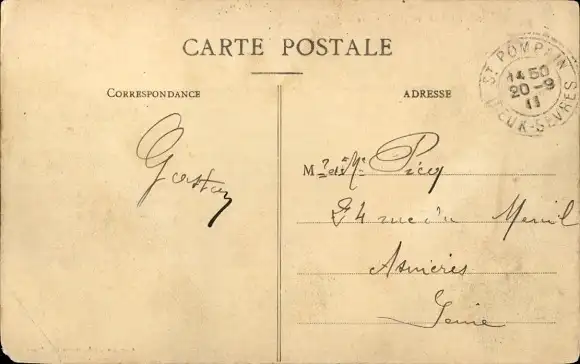 CARTE POSTALE
CORRESPONDANCE
ADRESSE
ST POMPAIN
14 50
20 - 9
11
DEUX-SÈVRES
Gaston
M. et Me
24 rue du Menil
Asnières
Seine